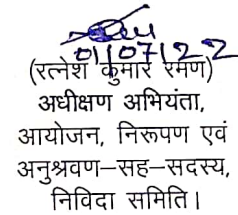 01/07/22
(रत्नेश कुमार रमण)
अधीक्षण अभियंता,
आयोजन, निरूपण एवं
अनुश्रवण–सह–सदस्य,
निविदा समिति।